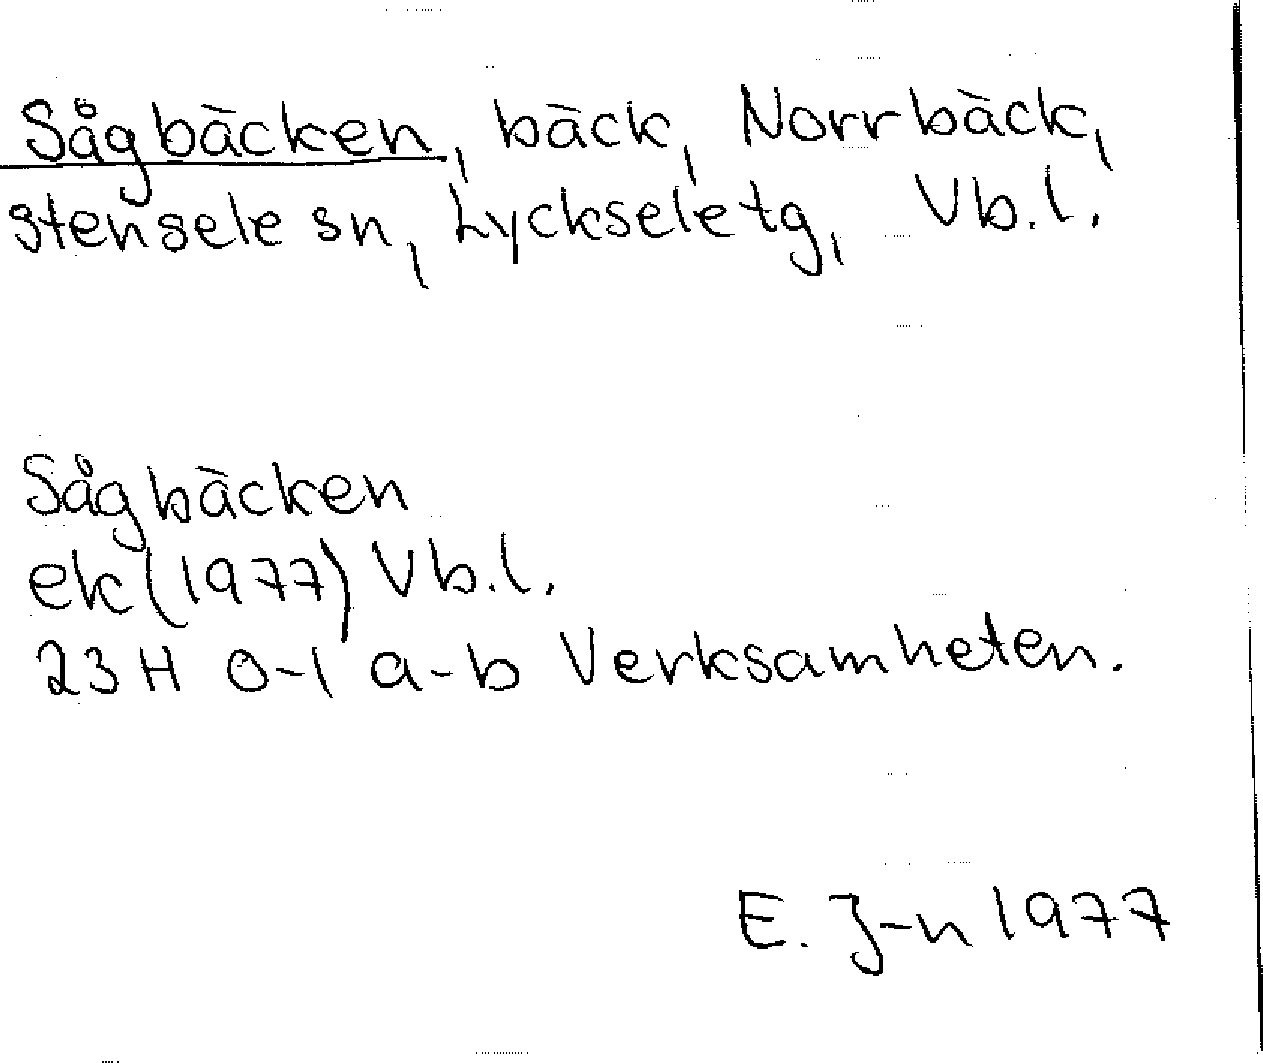 Sågbäcken, bäck, Norrbäck,
Stensele sn, Lycksele tg, Vb.l.
Sågbäcken
ek (1977) Vb.l.
23 H 0-1 a-b Verksamheten.
E. J-n 1977